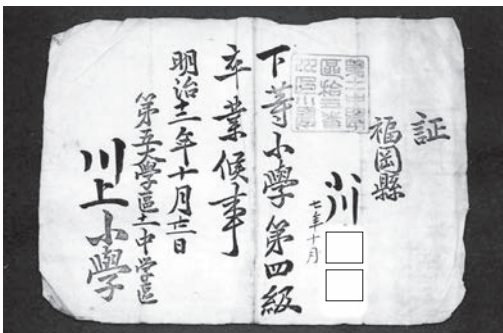 証
福岡縣
小川
七年十月
下等小學第四級
卒業候事
明治年十月日
第五大學區中学區
川上小學